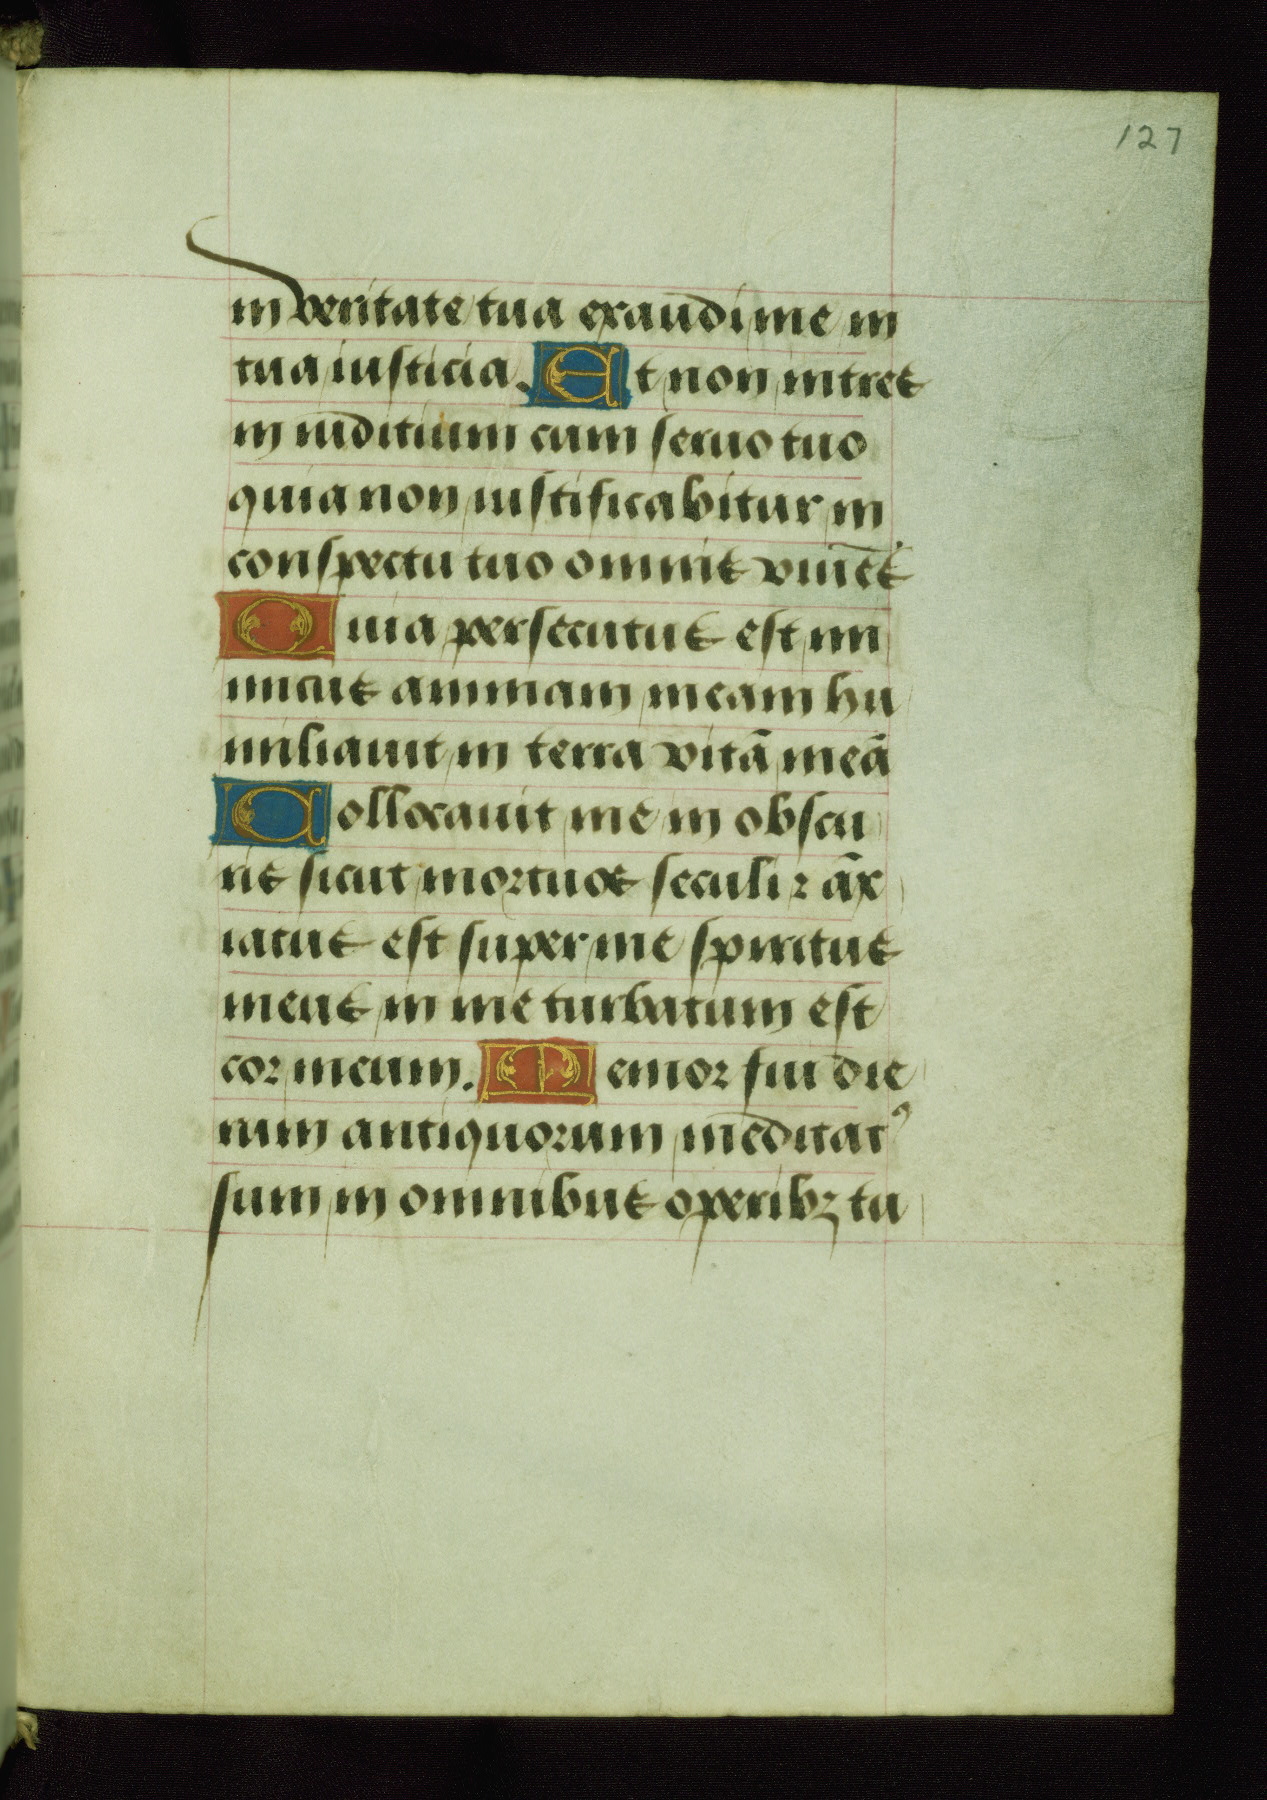 127
in veritate tua exaudi me in
tua iusticia. Et non intret
in iuditium cum seruo tuo
quia non iustificabitur in
conspectu tuo omnis viuēs
Quia persecutus est ini
micus animam meam hu
miliauit in terra vitā meā
Collocauit me in obscu
ris sicut mortuos seculi ⁊ āx
iatus est super me spiritus
meus in me turbatum est
cor meum. Memor fui die
rum antiquorum meditatꝰ
sum in omnibus operibꝫ tu